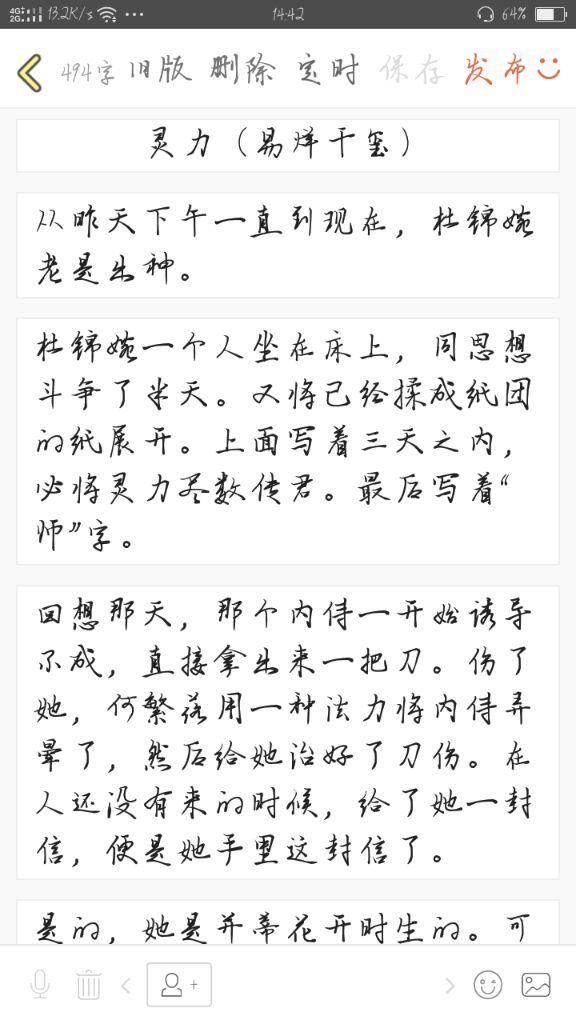 4G 2G 13.2K/s ... 14:42 64%
494字 旧版 删除 定时 保存 发布
灵力（易烊千玺）
从昨天下午一直到现在，杜锦婉
老是出神。
杜锦婉一个人坐在床上，同思想
斗争了半天。又将已经揉成纸团
的纸展开。上面写着三天之内，
必将灵力尽数传君。最后写着“
师”字。
回想那天，那个内侍一开始诱导
不成，直接拿出来一把刀。伤了
她，何繁落用一种法力将内侍弄
晕了，然后给她治好了刀伤。在
人还没有来的时候，给了她一封
信，便是她手里这封信了。
是的，她是并蒂花开时生的。可